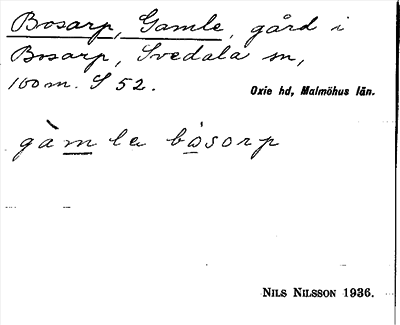 Bosarp, Gamle, gård i
Bosarp, Svedala sn,
100 m. S 52.
Oxie hd, Malmöhus län.
gàmla bòsorp
NILS NILSSON 1936.